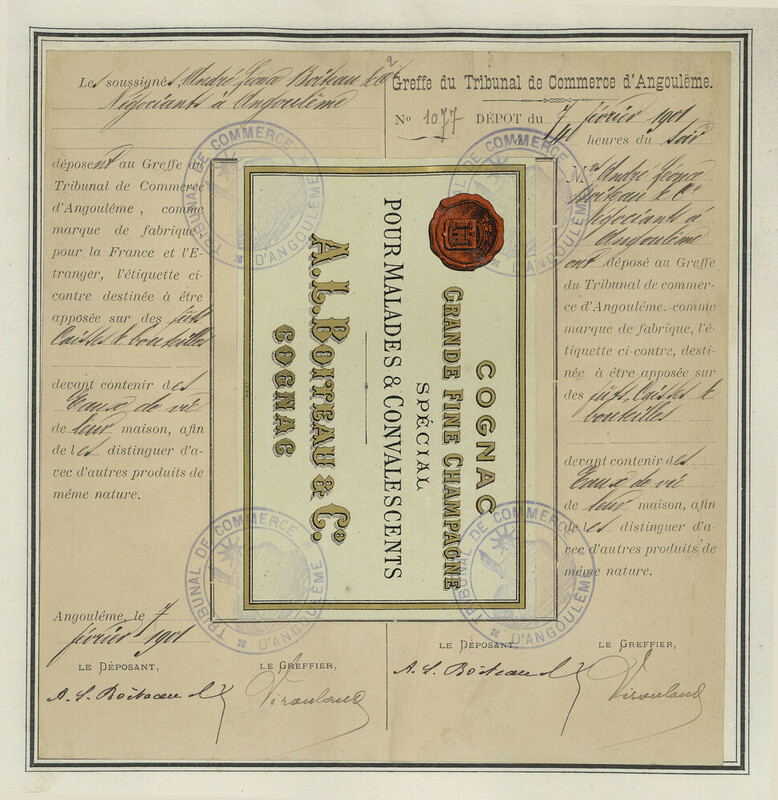 Les soussignés, André Léona Boiteau & Cie
Négociants à Angoulême
déposent au Greffe du
Tribunal de Commerce
d'Angoulême, comme
marque de fabrique,
pour la France et l'E-
tranger, l'étiquette ci-
contre destinée à être
apposée sur des fûts
Caisses & bouteilles
devant contenir des
Eaux de vie
de leur maison, afin
de les distinguer d'a-
vec d'autres produits de
même nature.
Angoulême, le 7
février 1901
LE DÉPOSANT,
LE GREFFIER,
A. L. Boiteau &
Virouland
COGNAC
GRANDE FINE CHAMPAGNE
SPÉCIAL
POUR MALADES & CONVALESCENTS
A.L. BOITEAU & Co.
COGNAC
Greffe du Tribunal de Commerce d'Angoulême.
No 1077 DÉPOT du 7 février 1901
heures du Soir
Mrs André Léona
Boiteau & Cie
Négociants à
Angoulême
ont déposé au Greffe
du Tribunal de commer-
ce d'Angoulême. comme
marque de fabrique, l'é-
tiquette ci-contre, desti-
née à être apposée sur
des fûts, Caisses &
bouteilles
devant contenir des
Eaux de vie
de leur maison, afin
de les distinguer d'a-
vec d'autres produits de
même nature.
LE DÉPOSANT,
LE GREFFIER,
A. L. Boiteau &
Virouland
TRIBUNAL DE COMMERCE
D'ANGOULÊME
TRIBUNAL DE COMMERCE
D'ANGOULÊME
TRIBUNAL DE COMMERCE
D'ANGOULÊME
TRIBUNAL DE COMMERCE
D'ANGOULÊME